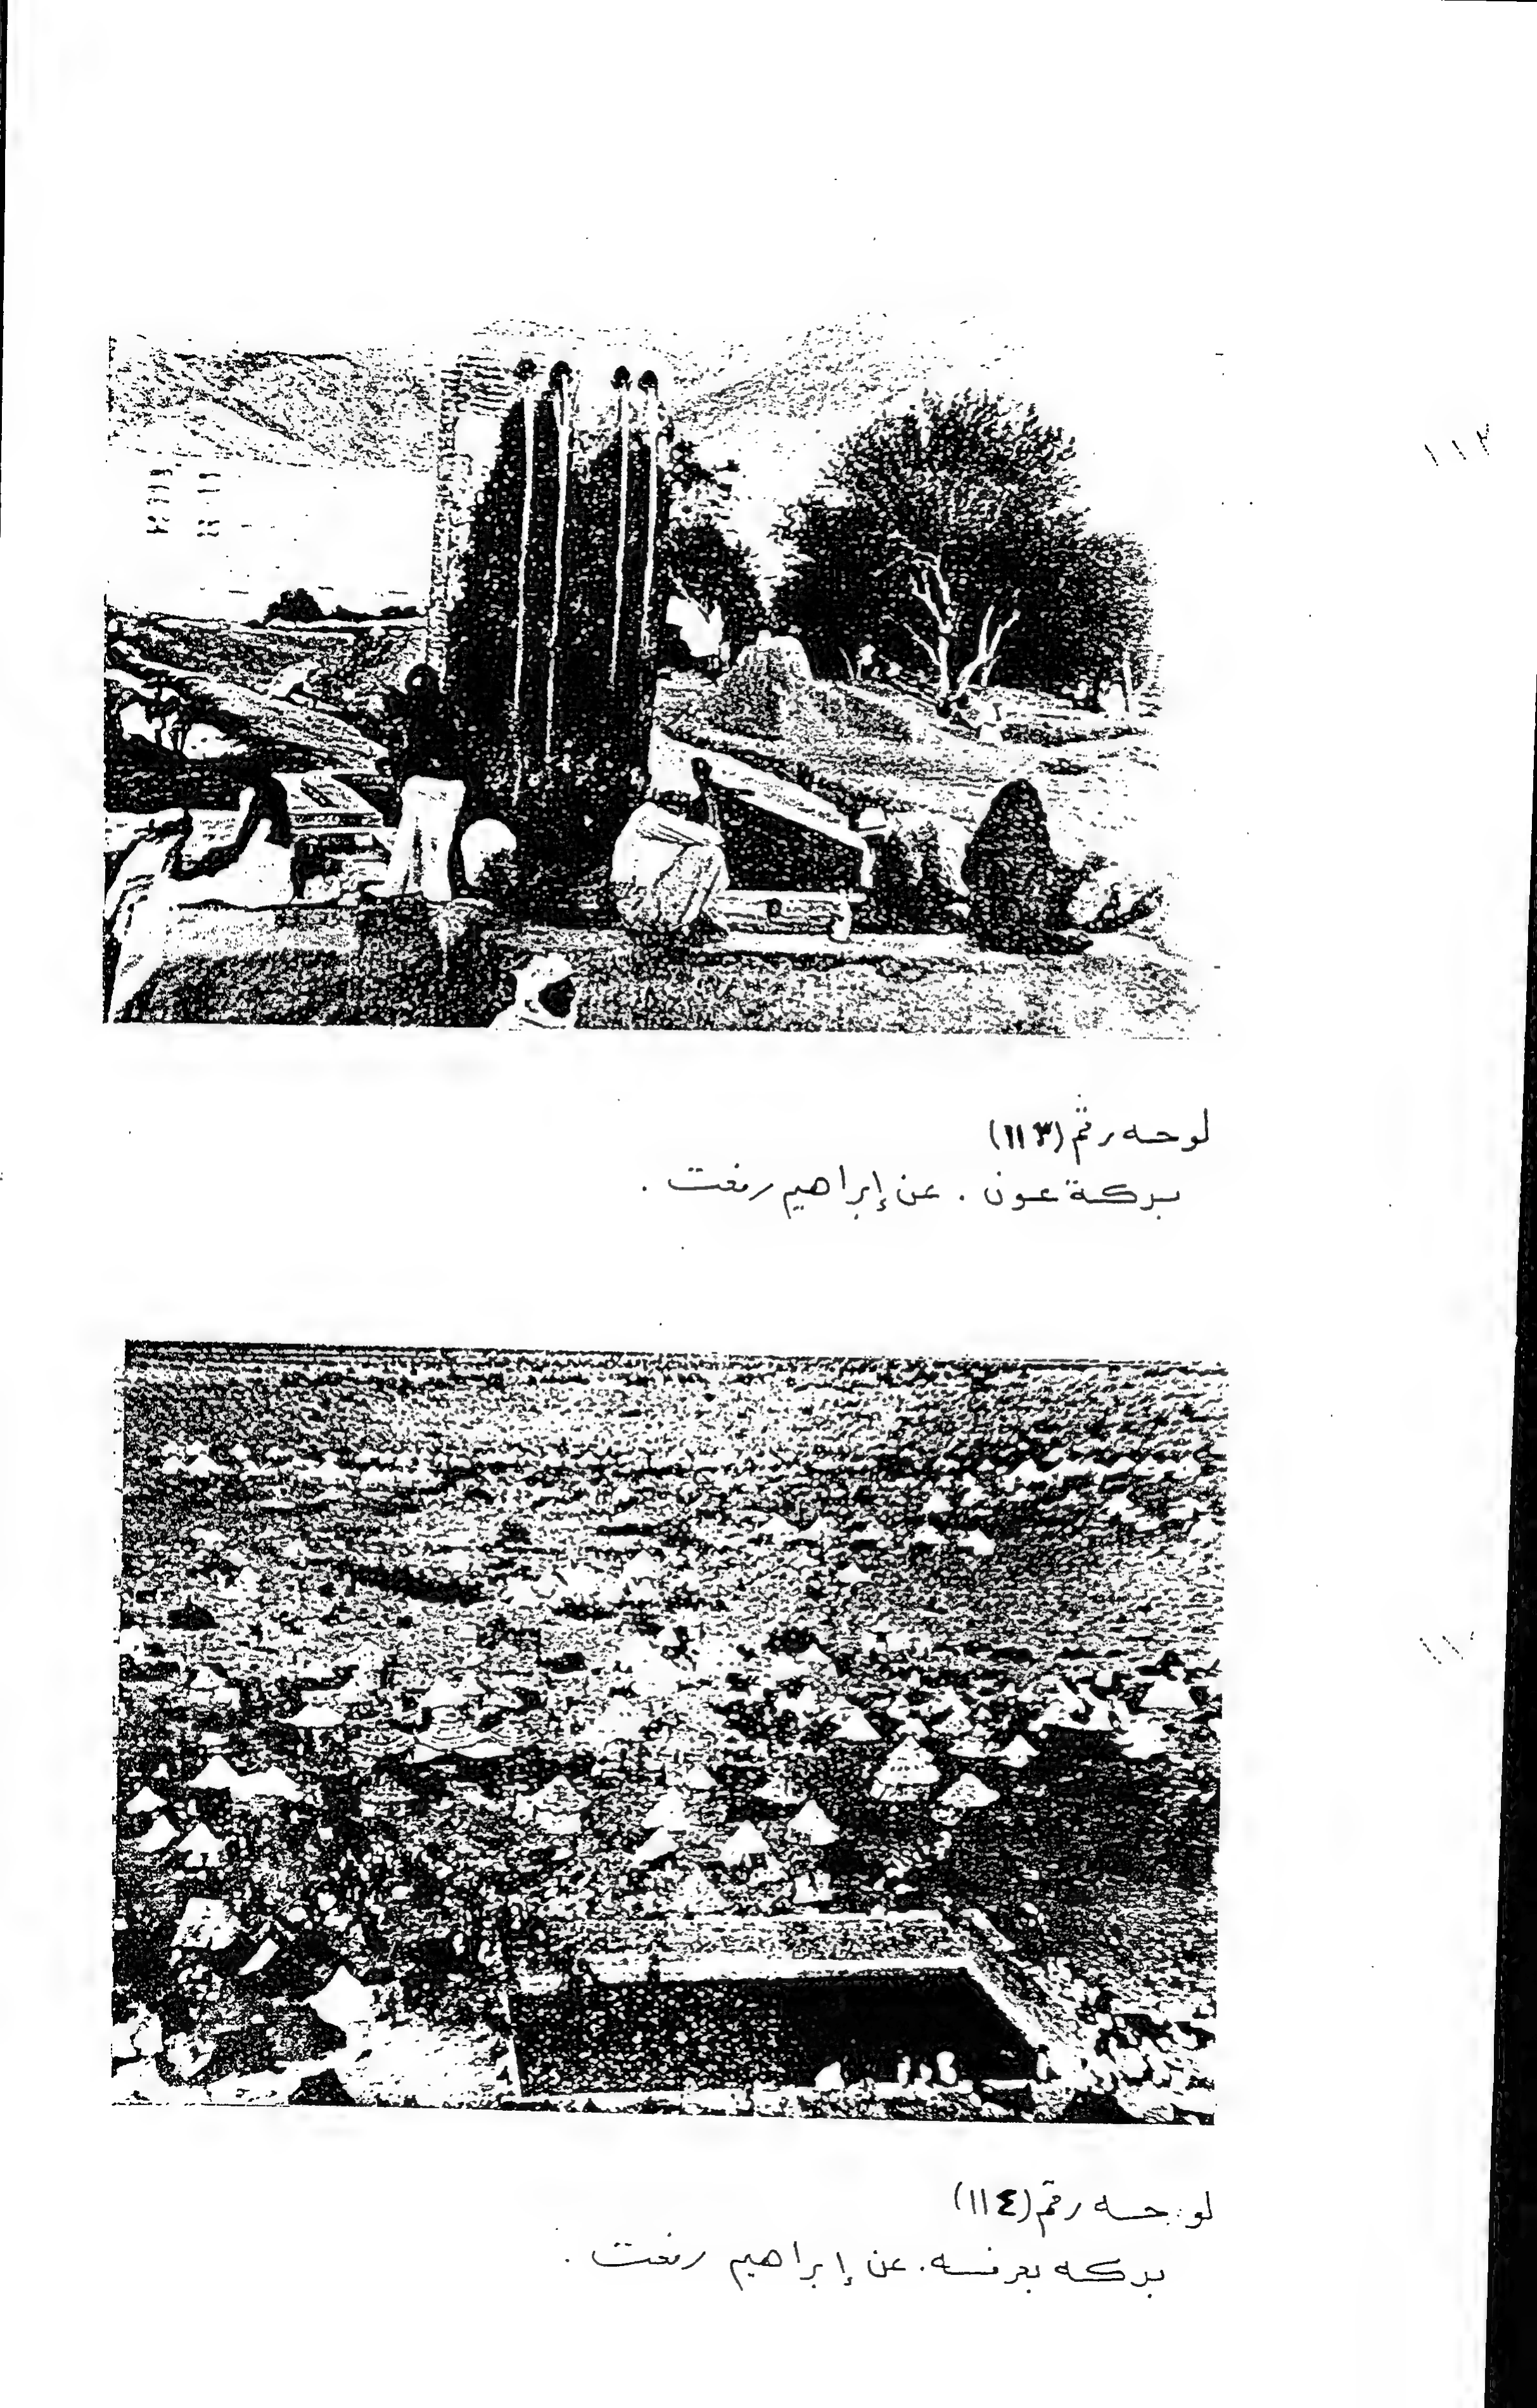 لوحه رقم (١١٣)
بركة عون . عن إبراهيم رفعت .
لوحه رقم (١١٤)
بركه بعرفه . عن إبراهيم رفعت .